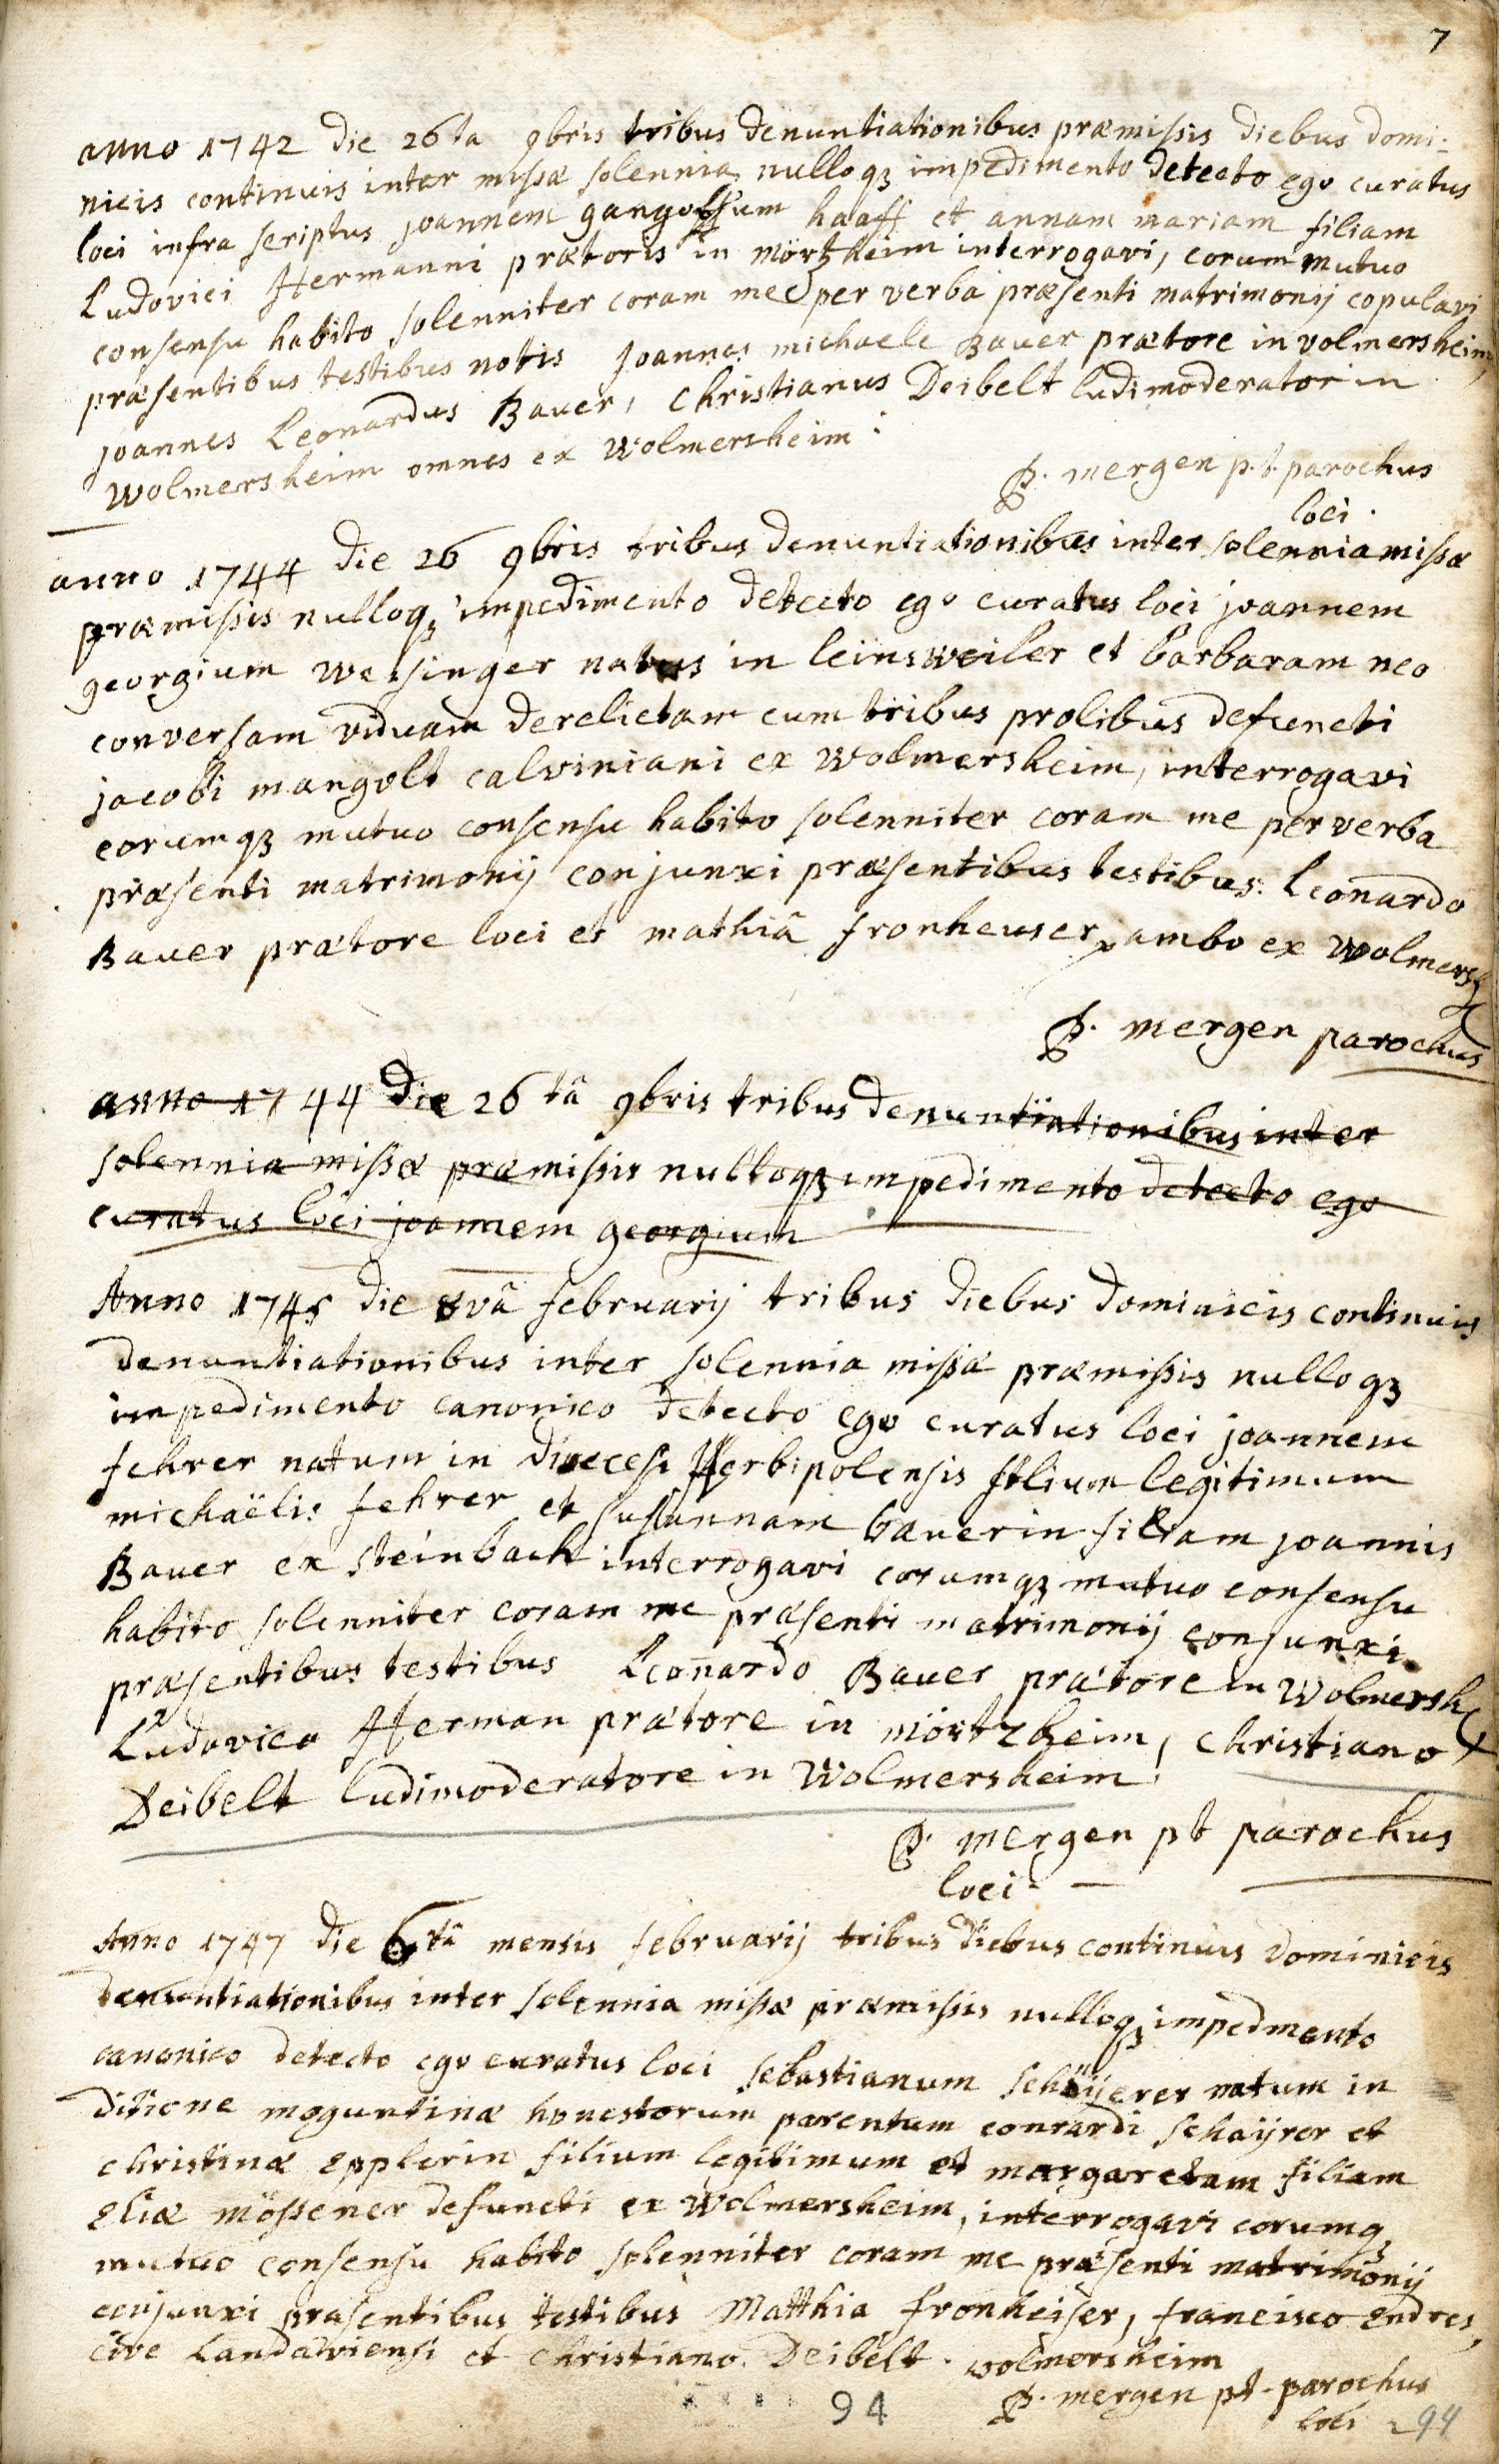 7
anno 1742 die 26ta 9bris tribus denuntiationibus præmissis diebus domi:
nicis continuis inter missæ solennia nulloqz impedimento detecto ego curatus
loci infra scriptus joannem gangolfum haaff et annam mariam filiam
Ludovici Hermanni prætoris in mörtzheim interrogavi, eorum mutuo
consensu habito solenniter coram me per verba præsenti matrimonij copulavi
præsentibus testibus notis joannes michaele Bauer prætore in volmersheim,
joannes Leonardus Bauer, Christianus Deibelt ludimoderator in
Wolmersheim omnes ex Wolmersheim:
P. mergen p.t. parochus
loci.
anno 1744 die 26 9bris tribus denuntiationibus inter solennia missæ
præmissis nulloqz impedimento detecto ego curatus loci joannem
georgium Wersinger natus in leinsweiler et barbaram neo
conversam viduam derelictam cum tribus prolibus defuncti
jacobi mangolt calviniani ex Wolmersheim, interrogavi
eorumqz mutuo consensu habito solenniter coram me per verba
præsenti matrimonij conjunxi præsentibus testibus: Leonardo
Bauer prætore loci et mathiâ fronheuser, ambo ex Wolmersh
P. mergen parochus
anno 1744 Die 26tâ 9bris tribus denuntiationibus inter
solennia missæ præmissis nulloqz impedimento detecto ego
curatus loci joannem georgium
Anno 1745 die 8vâ februarij tribus diebus dominicis continuis
denuntiationibus inter solennia missæ præmissis nulloqz
impedimento canonico detecto ego curatus loci joannem
fehrer natum in diœcesi Herbipolensis filium legitimum
michaëlis fehrer et susannam bauerin filiam joannis
Bauer ex steinbach interrogavi eorumqz mutuo consensu
habito solenniter coram me præsenti matrimonij conjunxi
præsentibus testibus Leonardo Bauer prætore in Wolmersh
Ludovico Herman prætore in mörtzheim, christiano
Deibelt ludimoderatore in Wolmersheim.
P. mergen pt parochus
loci
Anno 1747 die 6tâ mensis februarij tribus diebus continuis dominicis
denuntiationibus inter solennia missæ præmissis nulloqz impedmento
canonico detecto ego curatus loci sebastianum schäÿerer natum in
ditione moguntinæ honestorum parentum conrardi schaÿrer et
christinæ Epplerin filium legitimum et margaretam filiam
Eliæ mössener defuncti ex Wolmersheim, interrogavi eorumqz
mutuo consensu habito solenniter coram me præsenti matrimonij
conjunxi præsentibus testibus Matthia fronheiser, francisco Endres,
cive Landaviensi et christiano Deibelt. wolmersheim
P. mergen pt. parochus
loci
94
94